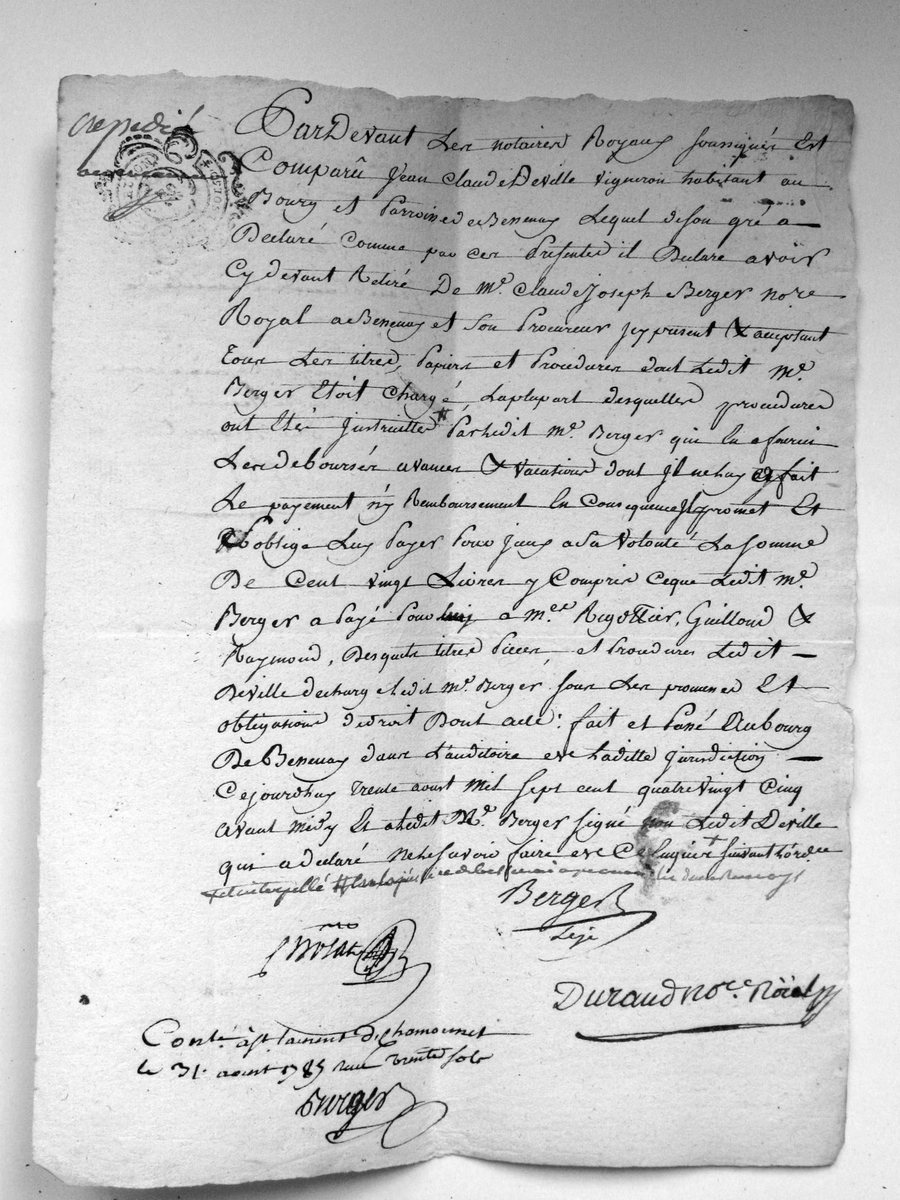 expedié
Par Devant Les notaires Royaux soussignés Est
Comparû Jean Claude Deville vigneron habitant au
Bourg et Parroisse de Bessenay Lequel de son gré a
Declaré comme par ces Presentes il Declare avoir
Cy devant Retiré De Me. Claude Joseph Berger nore
Royal a Bessenay et son Procureur jcy present & acceptant
Tous Les titres, Papiers et Procedures dont Ledit Me.
Berger Etoit Chargé, La plupart desquelles procedures
ont Eté justruittes Par Ledit Me. Berger qui En a fourni
Les deboursés avances & vacations dont jl ne luy a fait
Le payement ny Remboursement En Consequence jl promet Et
s'oblige Luy Payer Pour jceux a Sa Volonté La somme
De Cent vingt Livres y Compris Ceque Ledit Me.
Berger a Payé Pour luy a Mes. Rigottier, Guilloud &
Raymond, Desquels titres Pieces, et Procedures Ledit
Deville decharge Ledit Me. Berger sous Les promesses Et
obligations de droit Dont acte: fait et Passé Au bourg
De Bessenay dans L'auditoire de La ditte jurisdiction
Cejourdhuy trente aoust Mil Sept cent quatre vingt Cinq
avant midy Et a Ledit Me. Berger signé non Ledit Deville
qui a declaré ne Le savoir faire de Ce Enquis & suivant L'ordce
& interpellé
Berger
Durand Nore. Roial
Conlé. à St laurent de Chamousset
le 31. aoust 1785 reçu trente sols
Berger